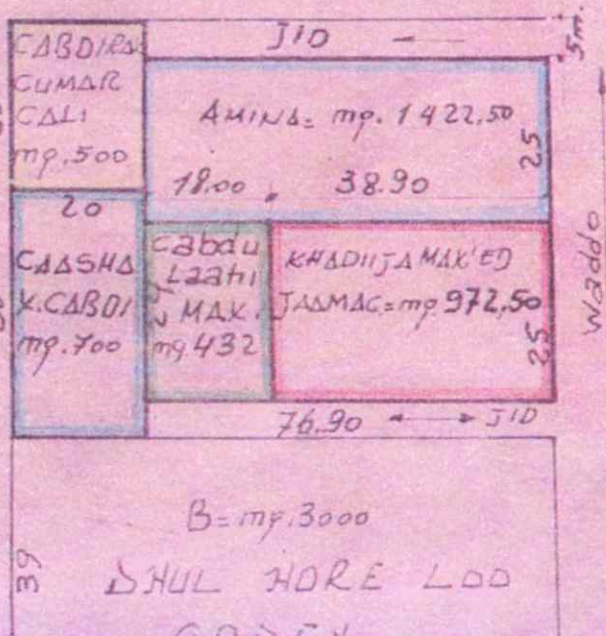 JID
5m.
CABDIRA
CUMAR
CALI
mq.500
AMINA= mq. 1422,50
25
18.00
38.90
20
CAASHA
X.CABDI
mq.700
Cabdu
Laahi
MAX.
mq 432
24
KHADIIJA MAX'ED
JAAMAC=mq.972,50
25
Waddo
76.90
JID
B=mq.3000
39
DHUL HORE LOO